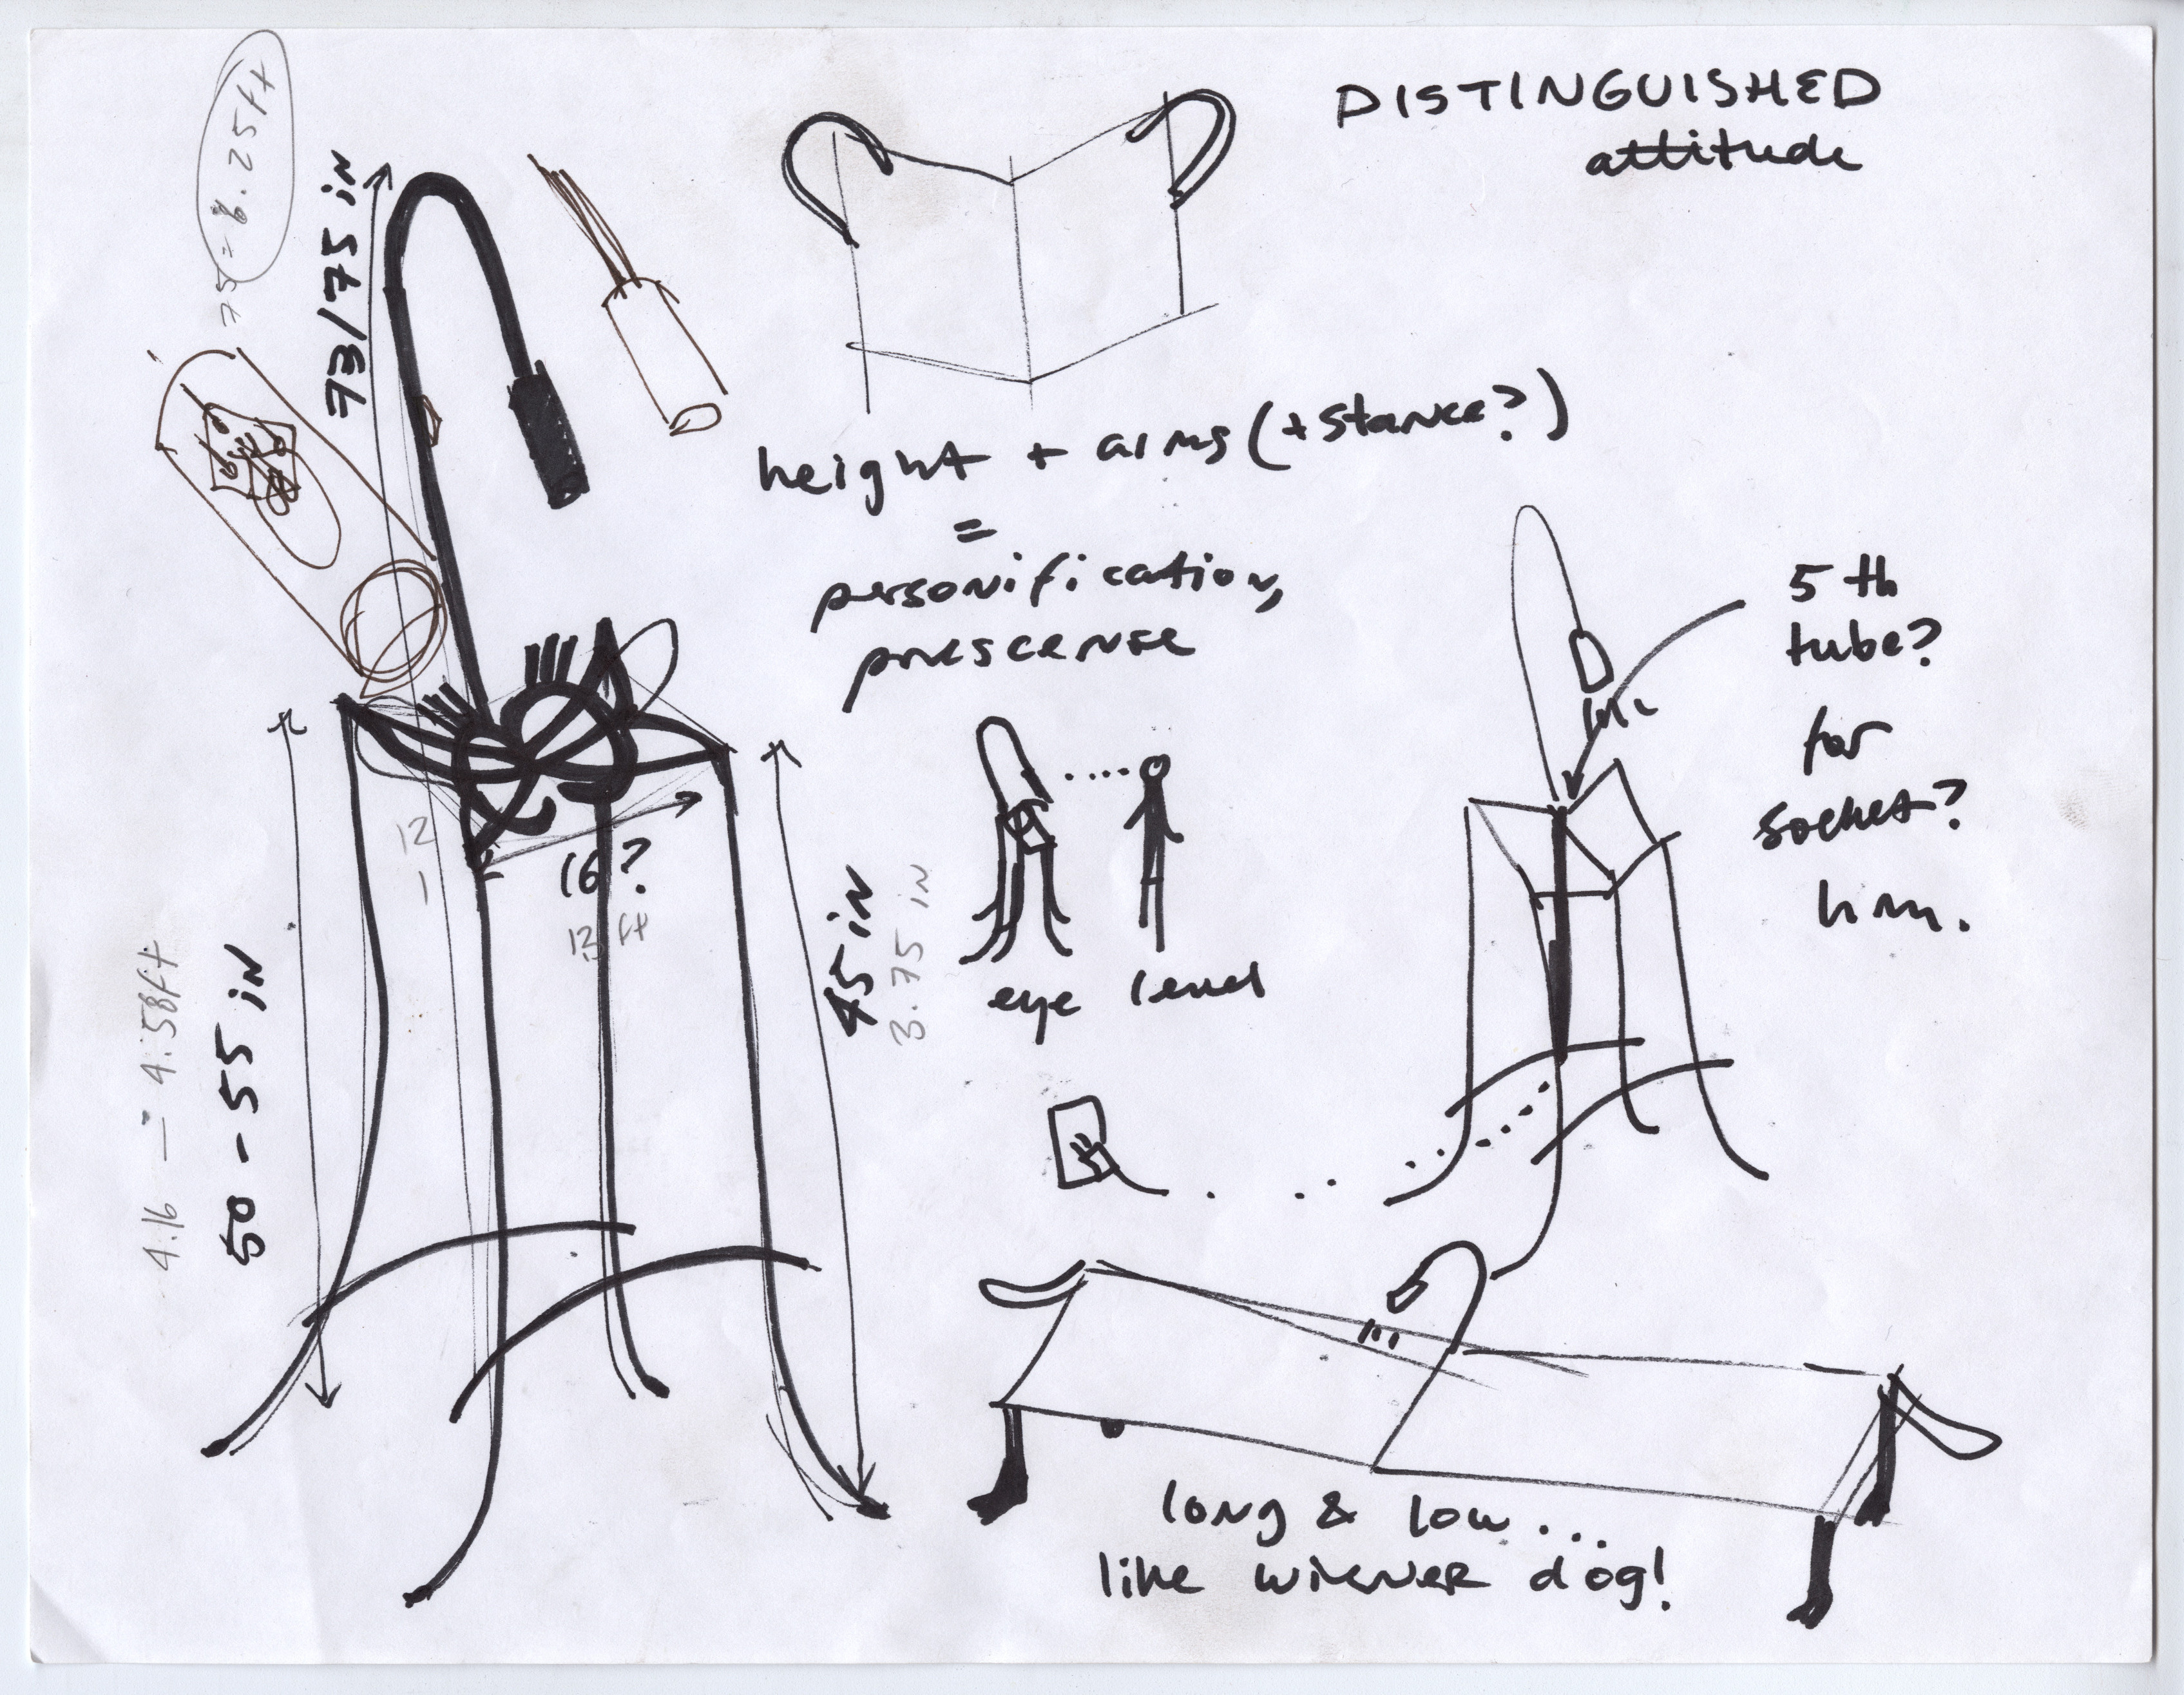 DISTINGUISHED
attitude
75 = 6.25ft
73/75 iN
height + arms (+ stance?)
=
personification,
prescense
5th
tube?
for
socket?
hm.
12
16?
12 ft
45 iN
3.75 iN
eye level
50 - 55 iN
4.16 — 4.58ft
long & low...
like wiener dog!